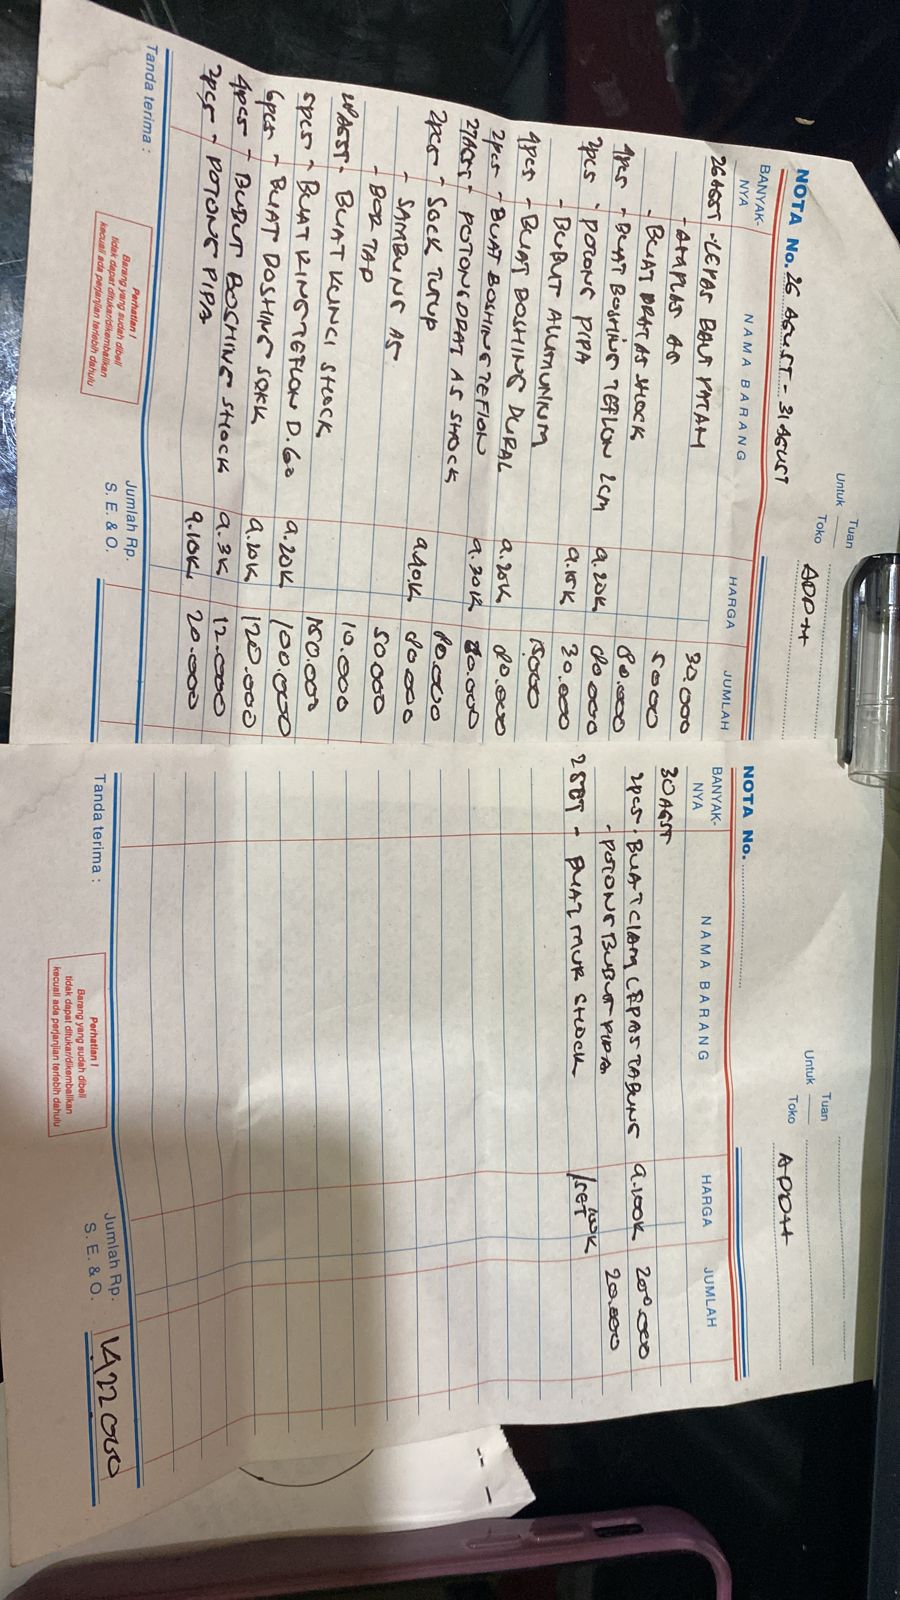 NOTA No. 26 AGUST - 31 AGUST
Tuan
Untuk
Toko
ADDH
BANYAK-NYA NAMA BARANG HARGA JUMLAH
26 AGST - LEPAS BAUT PATAH 30.000
- AMPLAS AS 5000
- BUAT DRAT AS SHOCK 80.000
4pcs - BUAT BOSHING TEFLON 2cm a.20K 80.000
2pcs - POTONG PIPA a.15K 30.000
- BUBUT ALUMUNIUM 15000
4pcs - BUAT BOSHING DURAL a.20K 80.000
2pcs - BUAT BOSHING TEFLON a.30K 60.000
27 AGST - POTONG DRAT AS SHOCK 80.000
2pcs - SOCK TUTUP a.40K 80.000
- SAMBUNG AS 50.000
- BOR TAP 10.000
28 AGST - BUAT KUNCI SHOCK 150.000
5pcs - BUAT RING TEFLON D.60 a.20K 100.000
6pcs - BUAT BOSHING SOKK a.20K 120.000
4pcs - BUBUT BOSHING SHOCK a.3K 12.000
2pcs - POTONG PIPA a.10K 20.000
Tanda terima :
Perhatian !
Barang yang sudah dibeli
tidak dapat ditukar/dikembalikan
kecuali ada perjanjian terlebih dahulu
Jumlah Rp.
S. E. & O.
NOTA No.
Tuan
Untuk
Toko
ADDH
BANYAK-NYA NAMA BARANG HARGA JUMLAH
30 AGST
2pcs - BUAT CLAM LEPAS TABUNG a.100K 200.000
- POTONG BUBUT PIPA 20.000
2 SET - BUAT MUR SHOCK 100K /SET
Tanda terima :
Perhatian !
Barang yang sudah dibeli
tidak dapat ditukar/dikembalikan
kecuali ada perjanjian terlebih dahulu
Jumlah Rp. 1422.000
S. E. & O.